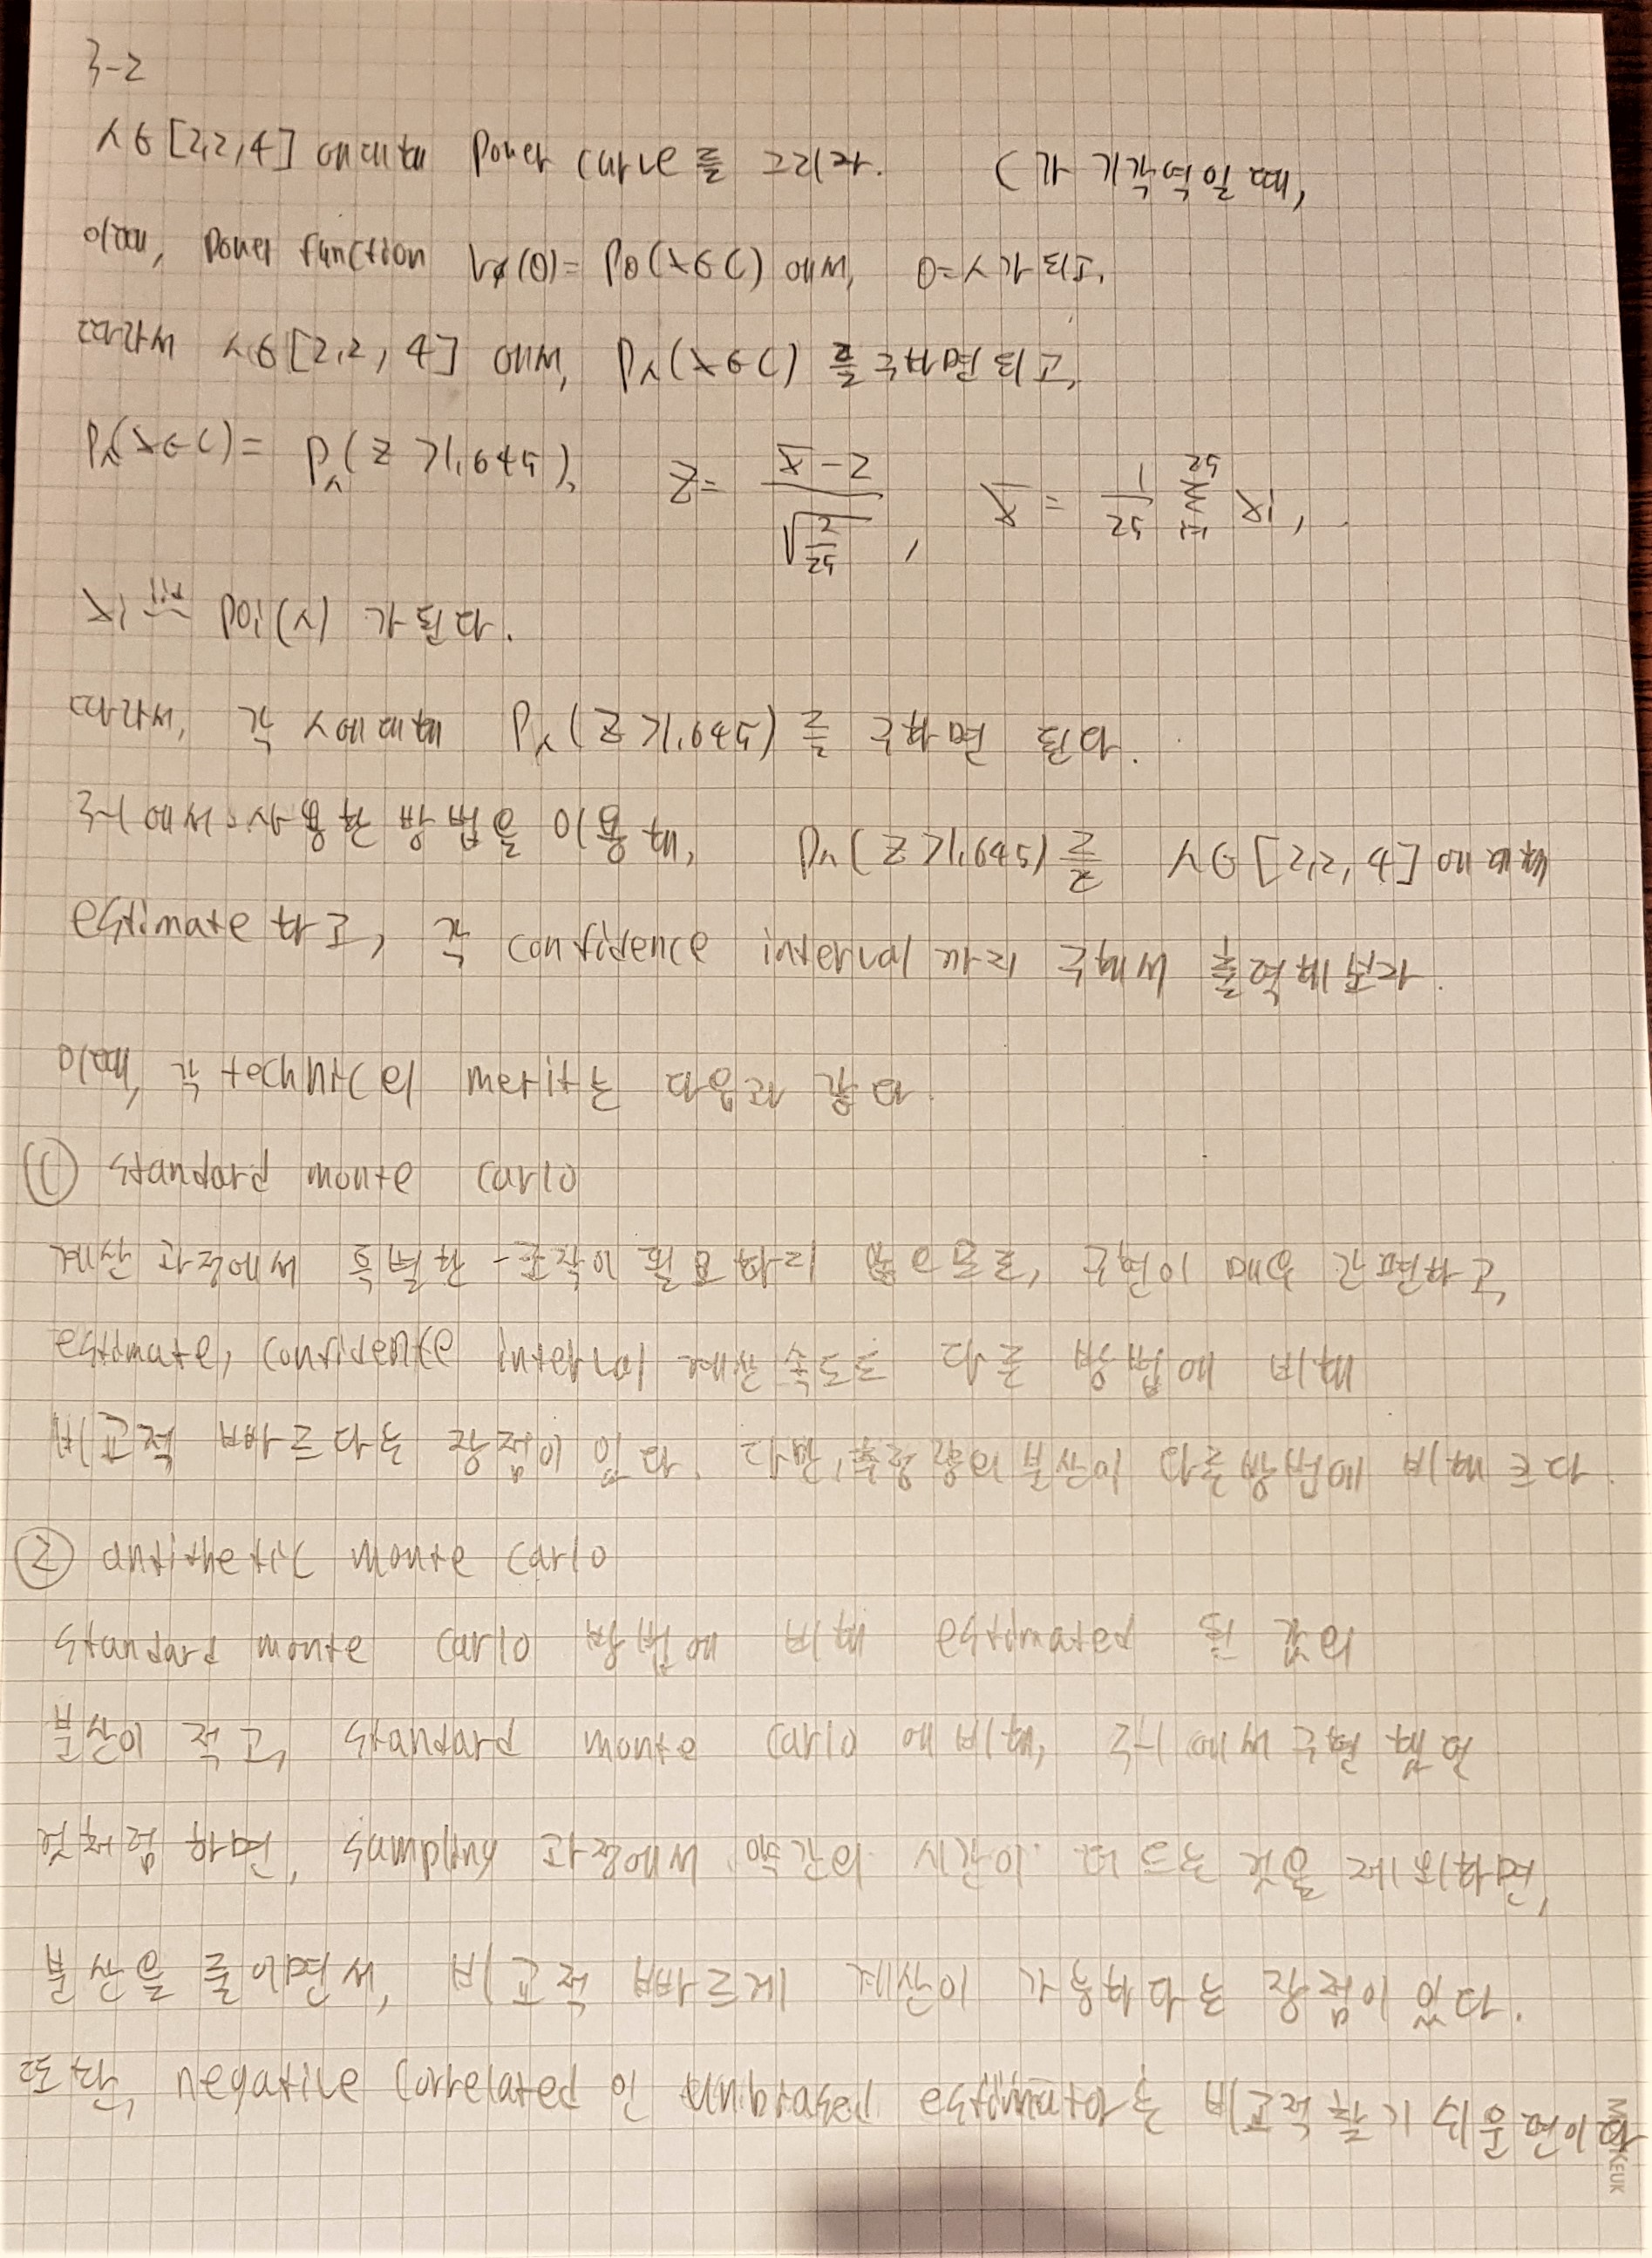 3-2
λ∈[2.2, 4] 에 대해 power curve를 그리자. C가 기각역일 때,
이때, power function (θ)= Pθ(X∈C) 에서, θ=λ가 되고,
따라서 λ∈[2.2, 4] 에서, Pλ(X∈C) 를 구하면 되고,
Pλ(X∈C) = Pλ(Z ≥1.645), Z = (X̄-2)/√(2/25), X̄ = 1/25 Σ_{i=1}^{25} Xi,
Xi iid~ Poi(λ) 가 된다.
따라서, 각 λ에 대해 Pλ(Z ≥1.645) 를 구하면 된다.
3-1에서 사용한 방법을 이용해, Pλ(Z ≥1.645)를 λ∈[2.2, 4] 에 대해
estimate하고, 각 confidence interval까지 구해서 출력해보자.
이때, 각 technic의 merit는 다음과 같다.
① standard monte carlo
계산 과정에서 특별한 조작이 필요하지 않으므로, 구현이 매우 간편하고,
estimate, confidence interval 계산 속도도 다른 방법에 비해
비교적 빠르다는 장점이 있다. 다만, 추정량의 분산이 다른 방법에 비해 크다.
② antithetic monte carlo
standard monte carlo 방법에 비해 estimated 된 값의
분산이 적고, standard monte carlo 에 비해, 3-1에서 구현 했던
것처럼 하면, sampling 과정에서 약간의 시간이 더 드는 것을 제외하면,
분산을 줄이면서, 비교적 빠르게 계산이 가능하다는 장점이 있다.
또한, negative correlated 인 unbiased estimator는 비교적 찾기 쉬운 편이다